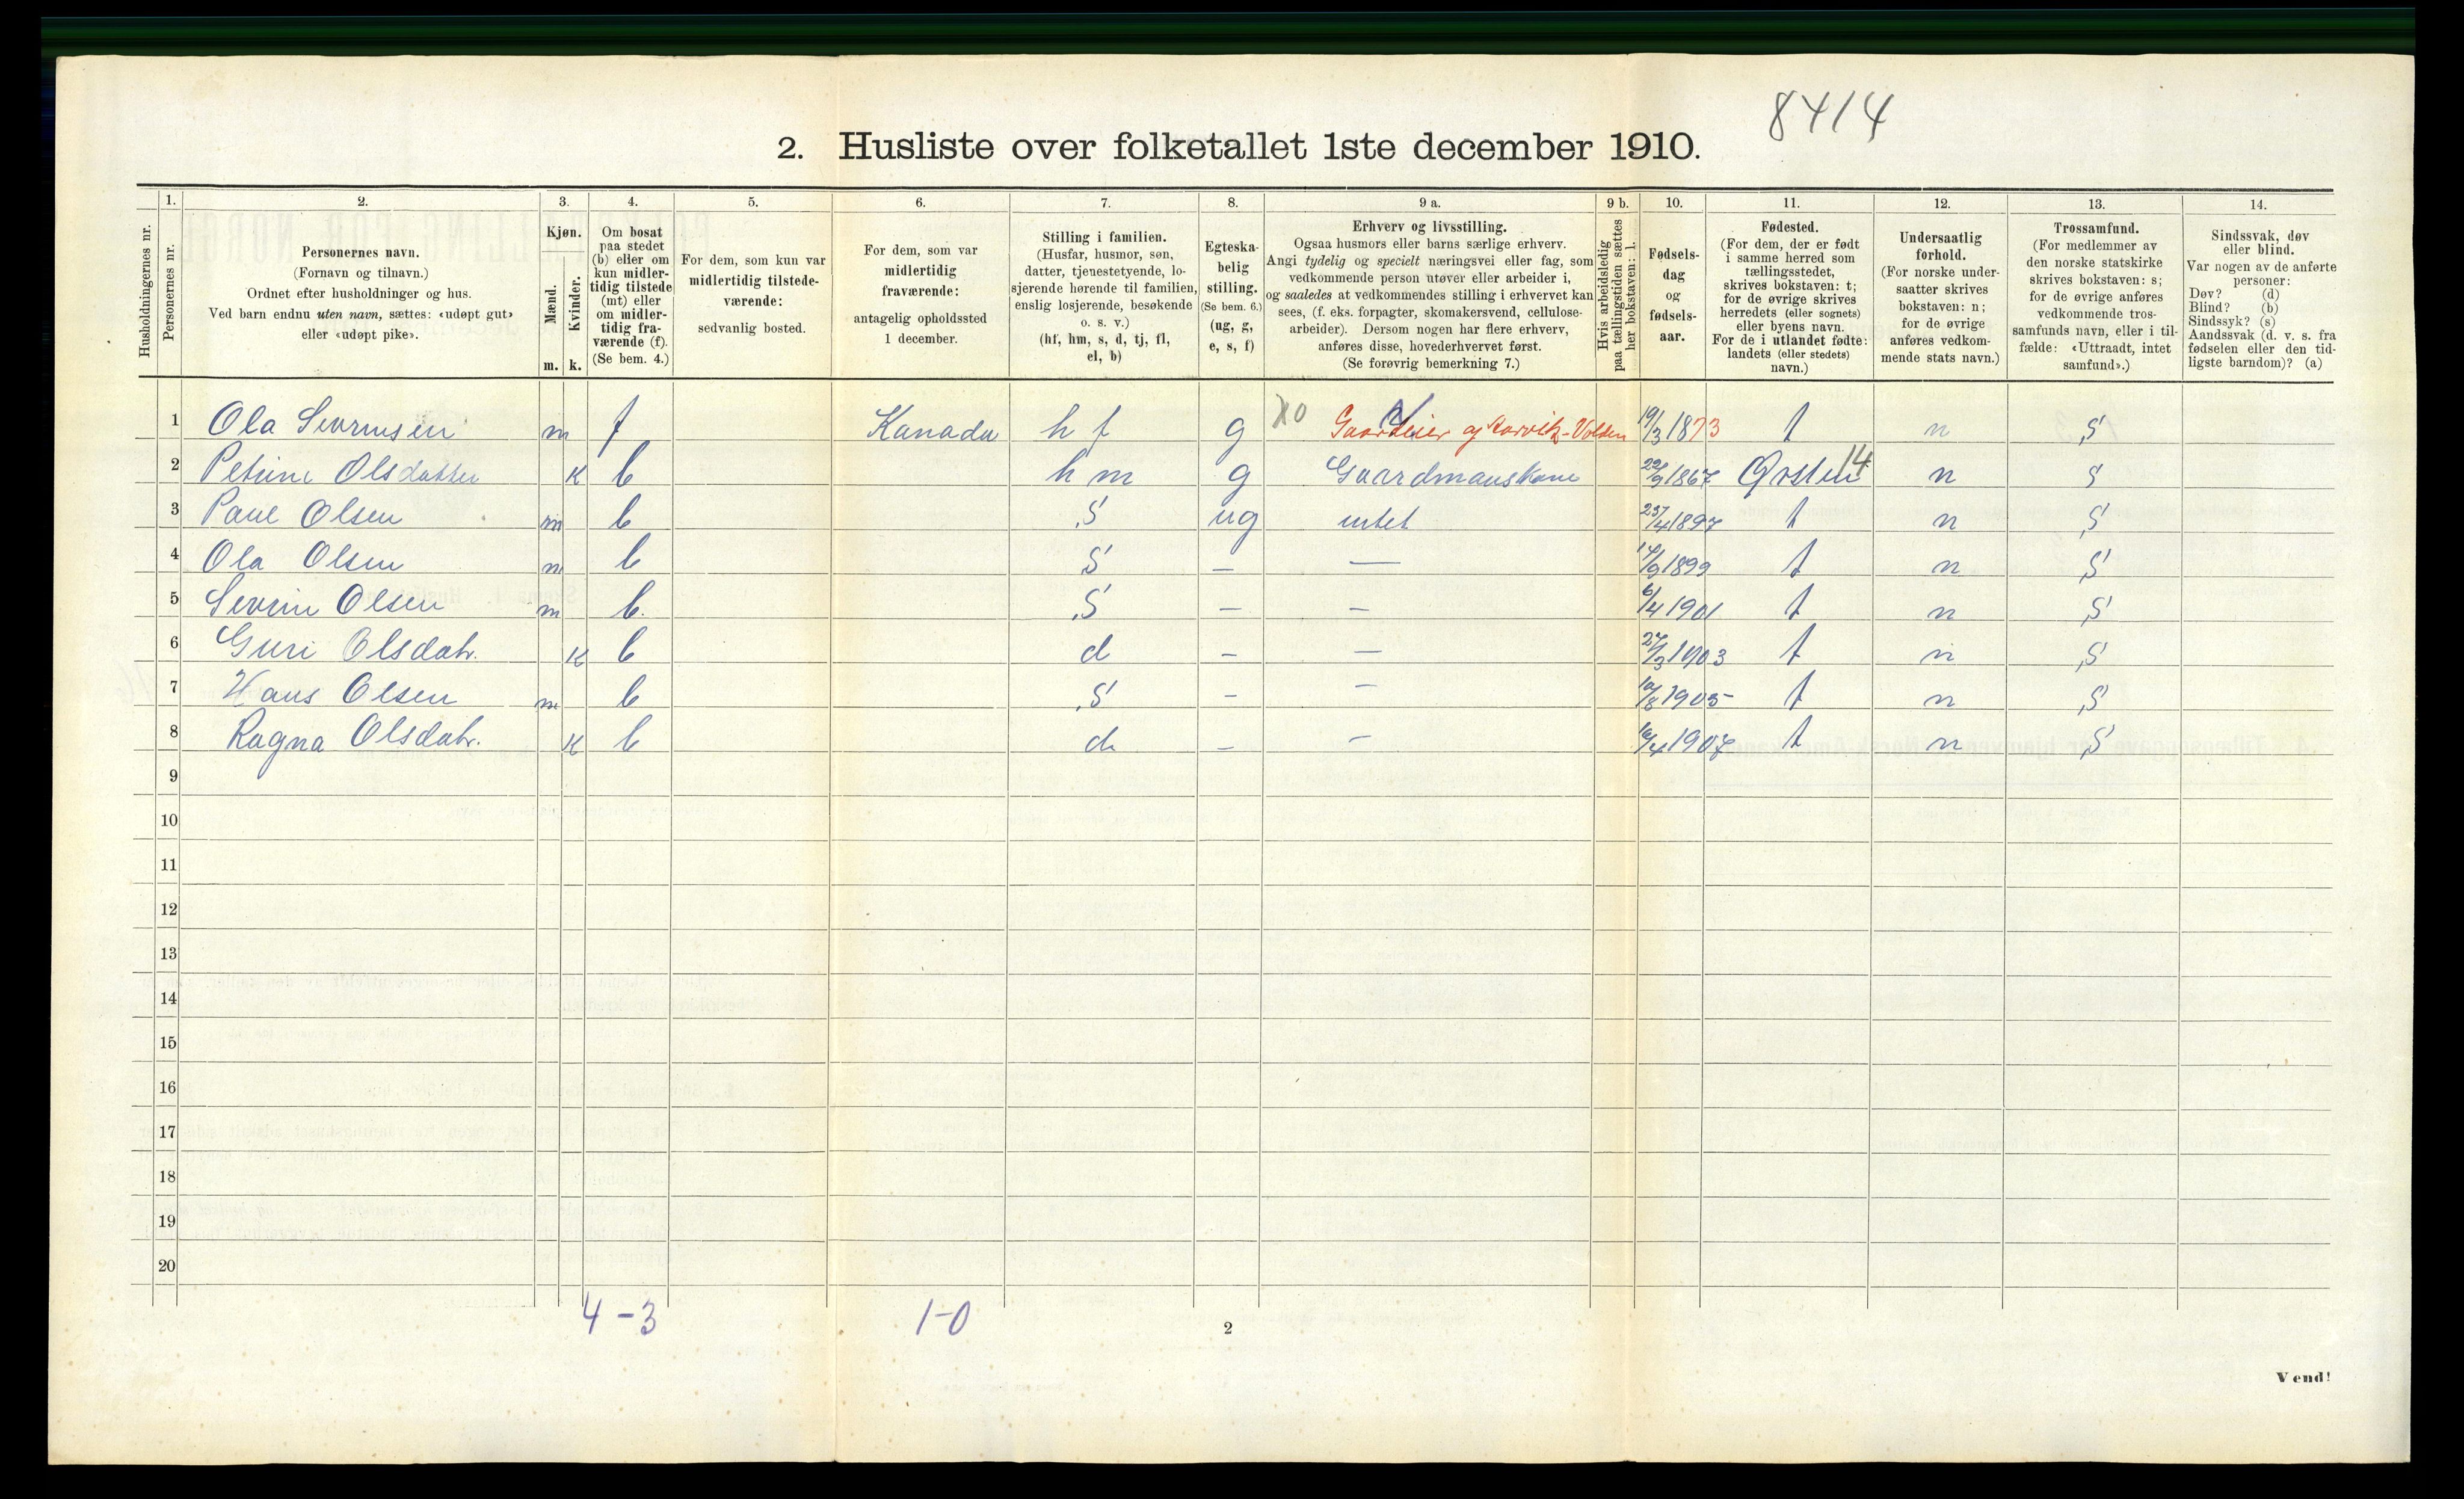 8414
2. Husliste over folketallet 1ste december 1910.
Husholdningernes nr.
1.
Personernes nr.
2.
Personernes navn.
(Fornavn og tilnavn.)
Ordnet efter husholdninger og hus.
Ved barn endnu uten navn, sættes: «udøpt gut»
eller «udøpt pike».
3.
Kjøn.
Mænd.
Kvinder.
m. k.
4.
Om bosat
paa stedet
(b) eller om
kun midler-
tidig tilstede
(mt) eller
om midler-
tidig fra-
værende (f).
(Se bem. 4.)
5.
For dem, som kun var
midlertidig tilstede-
værende:
sedvanlig bosted.
6.
For dem, som var
midlertidig
fraværende:
antagelig opholdssted
1 december.
7.
Stilling i familien.
(Husfar, husmor, søn,
datter, tjenestetyende, lo-
sjerende hørende til familien,
enslig losjerende, besøkende
o. s. v.)
(hf, hm, s, d, tj, fl,
el, b)
8.
Egteska-
belig
stilling.
(Se bem. 6.)
(ug, g,
e, s, f)
9 a.
Erhverv og livsstilling.
Ogsaa husmors eller barns særlige erhverv.
Angi tydelig og specielt næringsvei eller fag, som
vedkommende person utøver eller arbeider i,
og saaledes at vedkommendes stilling i erhvervet kan
sees, (f. eks. forpagter, skomakersvend, cellulose-
arbeider). Dersom nogen har flere erhverv,
anføres disse, hovederhvervet først.
(Se forøvrig bemerkning 7.)
9 b.
Hvis arbeidsledig
paa tællingstiden sættes
her bokstaven: l.
10.
Fødsels-
dag
og
fødsels-
aar.
11.
Fødested.
(For dem, der er født
i samme herred som
tællingsstedet,
skrives bokstaven: t;
for de øvrige skrives
herredets (eller sognets)
eller byens navn.
For de i utlandet fødte:
landets (eller stedets)
navn.)
12.
Undersaatlig
forhold.
(For norske under-
saatter skrives
bokstaven: n;
for de øvrige
anføres vedkom-
mende stats navn.)
13.
Trossamfund.
(For medlemmer av
den norske statskirke
skrives bokstaven: s;
for de øvrige anføres
vedkommende tros-
samfunds navn, eller i til-
fælde: «Uttraadt, intet
samfund».)
14.
Sindssvak, døv
eller blind.
Var nogen av de anførte
personer:
Døv? (d)
Blind? (b)
Sindssyk? (s)
Aandssvak (d. v. s. fra
fødselen eller den tid-
ligste barndom)? (a)
1 Ola Sevrinsen m f Kanada h f g X0 19/3 1873 t n S
2 Petrine Olsdatter K b h m g Gaardmanskone 22/9 1867 Ørsten 14 n s
3 Paul Olsen m b S ug intet 23/4 1897 t n S
4 Ola Olsen m b S — — 14/9 1899 t n S
5 Sevrin Olsen m b. S — — 6/4 1901 t n S
6 Guri Olsdatr. K b d — — 27/3 1903 t n S
7 Hans Olsen m b S — — 10/8 1905 t n S
8 Ragna Olsdatr. K b d — — 6/4 1907 t n S
9
10
11
12
13
14
15
16
17
18
19
20
4 - 3 1-0
2
Vend!